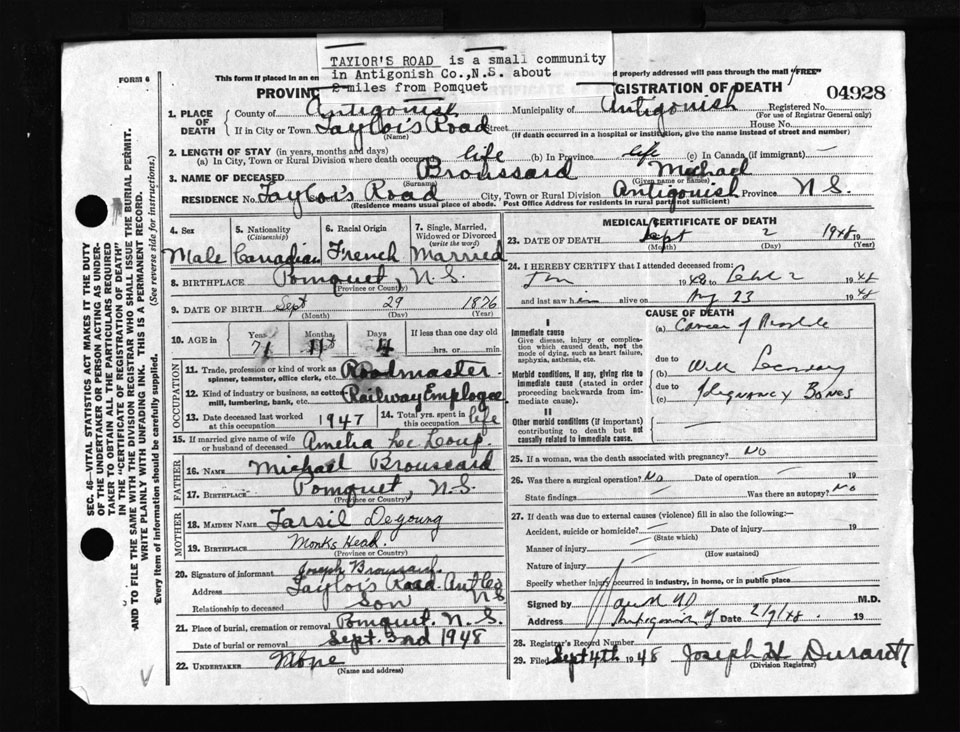 TAYLOR'S ROAD is a small community
in Antigonish Co.,N.S. about
2 miles from Pomquet
FORM 6
This form if placed in an en
d properly addressed will pass through the mail "FREE"
PROVINC
GISTRATION OF DEATH
04928
1. PLACE OF DEATH
County of Antigonish Municipality of Antigonish Registered No.
(For use of Registrar General only)
If in City or Town Taylor's Road Street House No.
(Name) (If death occurred in a hospital or institution, give the name instead of street and number)
2. LENGTH OF STAY (in years, months and days)
(a) In City, Town or Rural Division where death occur life (b) In Province life (c) In Canada (if immigrant) —
3. NAME OF DECEASED Broussard Michael
(Surname) (Given name or names)
RESIDENCE No. Taylor's Road City, Town or Rural Division Antigonish Province N.S.
(Residence means usual place of abode. Post Office Address for residents in rural parts not sufficient)
4. Sex
Male
5. Nationality
(Citizenship)
Canadian
6. Racial Origin
French
7. Single, Married, Widowed or Divorced
(write the word)
Married
8. BIRTHPLACE Pomquet, N.S.
(Province or County)
9. DATE OF BIRTH Sept 29 1876
(Month) (Day) (Year)
10. AGE in
Years 71
Months 11
Days 4
If less than one day old
hrs. or min.
OCCUPATION
11. Trade, profession or kind of work as Roadmaster
spinner, teamster, office clerk, etc.
12. Kind of industry or business, as cotton Railway Employee
mill, lumbering, bank, etc.
13. Date deceased last worked at this occupation 1947
14. Total yrs. spent in this occupation life
15. If married give name of wife or husband of deceased Amelia Lee Loup.
FATHER
16. NAME Michael Broussard
17. BIRTHPLACE Pomquet, N.S.
(Province or County)
MOTHER
18. MAIDEN NAME Tarsil Deyoung
19. BIRTHPLACE Monks Head.
(Province or County)
20. Signature of informant Joseph Broussard.
Address Taylor's Road Ant Co N S
Relationship to deceased Son
21. Place of burial, cremation or removal Pomquet. N.S.
Date of burial or removal Sept. 3rd 1948
22. UNDERTAKER None
(Name and address)
MEDICAL CERTIFICATE OF DEATH
23. DATE OF DEATH Sept 2 1948 19
(Month) (Day) (Year)
24. I HEREBY CERTIFY that I attended deceased from:
19 48 to 2 19 48
and last saw him alive on Aug 23 19 48
CAUSE OF DEATH
I
Immediate cause
Give disease, injury or complication which caused death, not the mode of dying, such as heart failure, asphyxia, asthenia, etc.
(a) Cancer of Prostate
due to
Morbid conditions, if any, giving rise to immediate cause (stated in order proceeding backwards from immediate cause).
(b) With Secondary
due to
(c) Bones
II
Other morbid conditions (if important) contributing to death but not causally related to immediate cause.
25. If a woman, was the death associated with pregnancy? No
26. Was there a surgical operation? No Date of operation — 19
State findings — Was there an autopsy? No
27. If death was due to external causes (violence) fill in also the following:—
Accident, suicide or homicide? Date of injury 19
(State which)
Manner of injury
(How sustained)
Nature of injury
Specify whether injury occurred in industry, in home, or in public place
Signed by M.D.
Address Antigonish Date 2/9/48.
28. Registrar's Record Number
29. Filed Sept 4th 1948 Joseph H Durant
(Division Registrar)
SEC. 46—VITAL STATISTICS ACT MAKES IT THE DUTY
OF THE UNDERTAKER OR PERSON ACTING AS UNDERTAKER TO OBTAIN ALL THE PARTICULARS REQUIRED
IN THE "CERTIFICATE OF REGISTRATION OF DEATH"
AND TO FILE THE SAME WITH THE DIVISION REGISTRAR WHO SHALL ISSUE THE BURIAL PERMIT.
WRITE PLAINLY WITH UNFADING INK. THIS IS A PERMANENT RECORD.
Every item of information should be carefully supplied. (See reverse side for instructions.)